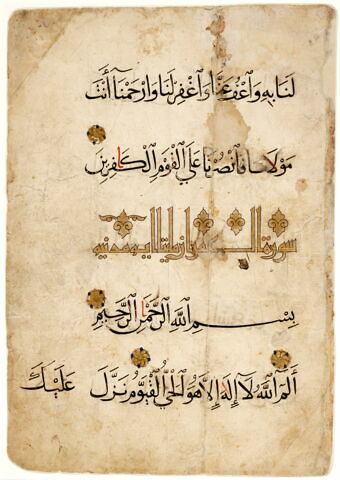 لَنَا بِهِ وَٱعْفُ عَنَّا وَٱغْفِرْ لَنَا وَٱرْحَمْنَا أَنتَ
مَوْلَانَا فَٱنصُرْنَا عَلَى ٱلْقَوْمِ ٱلْكَافِرِينَ
سورة آل عمران مايتا اية مدنية
بِسْمِ ٱللَّهِ ٱلرَّحْمَٰنِ ٱلرَّحِيمِ
الٓمٓ ٱللَّهُ لَآ إِلَٰهَ إِلَّا هُوَ ٱلْحَىُّ ٱلْقَيُّومُ نَزَّلَ عَلَيْكَ